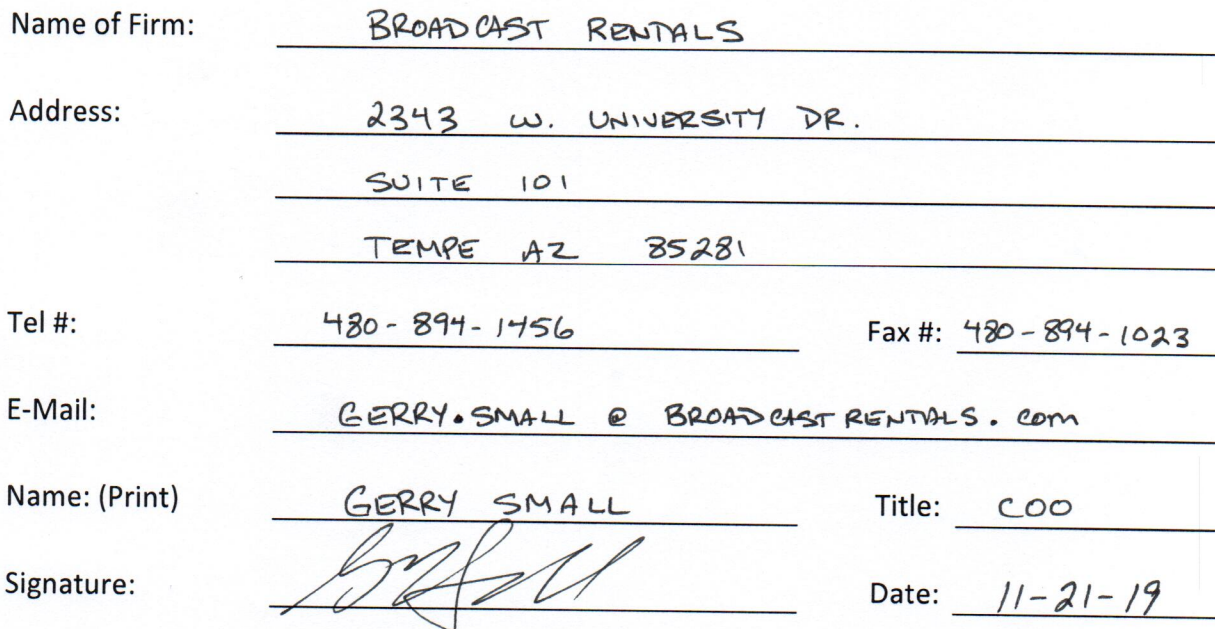 Name of Firm: BROADCAST RENTALS
Address: 2343 W. UNIVERSITY DR.
SUITE 101
TEMPE AZ 85281
Tel #: 480-894-1456 Fax #: 480-894-1023
E-Mail: GERRY.SMALL @ BROADCASTRENTALS.COM
Name: (Print) GERRY SMALL Title: COO
Signature: Date: 11-21-19